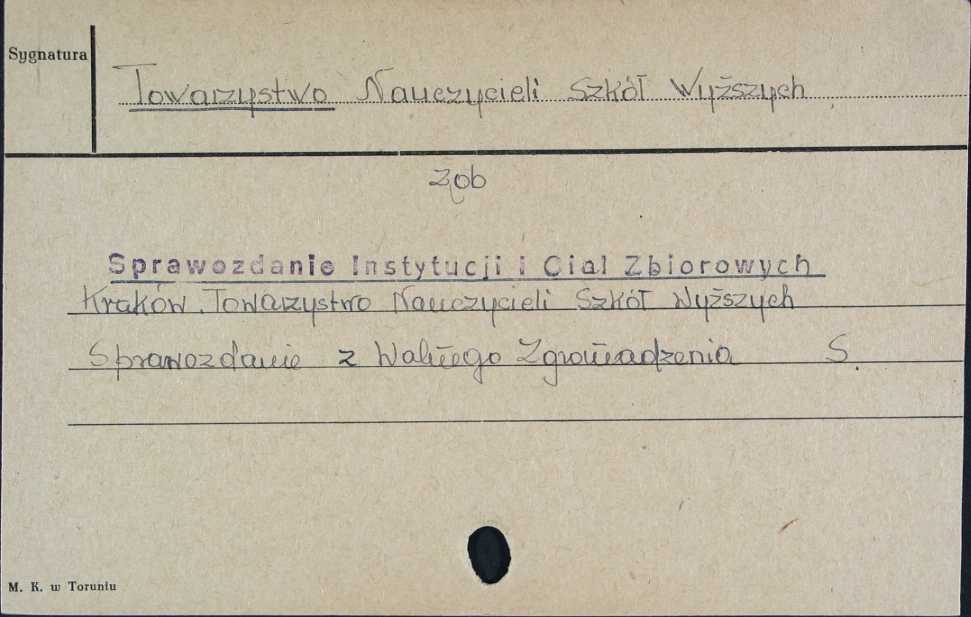 Sygnatura
Towarzystwo Nauczycieli Szkół Wyższych
zob
Sprawozdanie Instytucji i Cial Zbiorowych
Kraków. Towarzystwo Nauczycieli Szkół Wyższych
Sprawozdanie z Walnego Zgromadzenia S.
M. K. w Toruniu